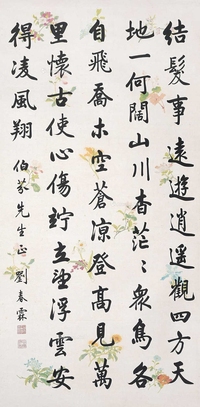 結髮事遠遊逍遥觀四方天
地一何闊山川杳茫〻眾鳥各
自飛喬木空蒼涼登高見萬
里懷古使心傷竚立望浮雲安
得凌風翔 伯芬先生正 劉春霖